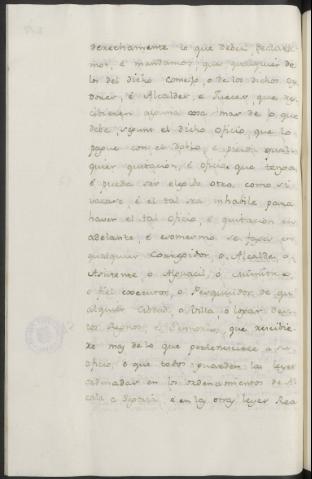 derechamente lo que deben declara-
mos, é mandamos, que qualquier de
los del dicho Consejo, o de los dichos Oy-
dores, é Alcaldes, e Jueces, que res-
cibieren alguna cosa mas de lo que
debe, segunt el dicho Oficio, que lo
pague con el doblo, e pierda qual-
quier quitacion, é oficio que tenga,
é pueda ser elegido otro, como si
vacase, é el tal sea inhabile para
haver el tal oficio, é quitacion en
adelante, é esomesmo se faga en
qualquier Corregidor, o Alcalde, o
Asistente, o Alguacil, o Ministro,
o fiel executor, o Pesquisidor de qual
alquier Cibdad, o Villa, o logar de es-
tos Reynos, é Señorios, que rescibie-
re mas de lo que pertenesciere a su
oficio, e que todos guarden las leyes
ordenadas en los ordenamientos de Al
cala e Segovia, é en las otras leyes Rea